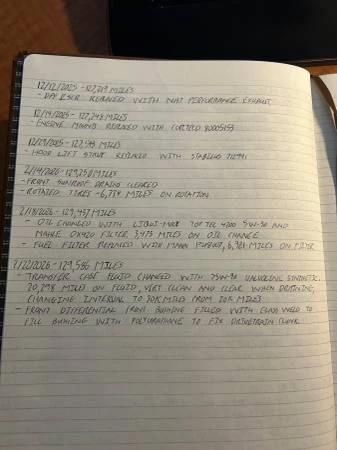 12/12/2025 - 127,219 MILES
- REPLACED WITH PERFORMANCE EXHAUST
12/19/2025 - 127,248 MILES
- ENGINE MOUNTS REPLACED WITH CORTECO
12/29/2025 - MILES
- HOOD LIFT STRUT REPLACED WITH STABILUS
2/14/2026 - MILES
- FRONT SUNROOF DRAINS CLEARED
- ROTATED TIRES - 6,734 MILES ON ROTATION
2/18/2026 - 129,457 MILES
- OIL CHANGED WITH LIQUI-MOLY TOP TEC 4200 5W-30 AND
MAHLE FILTER 3,973 MILES ON OIL CHANGE
- FUEL FILTER REPLACED WITH MANN MILES ON FILTER
2/22/2026 - 129,586 MILES
- TRANSFER CASE FLUID CHANGED WITH 75W-90 VALVOLINE SYNTHETIC.
MILES ON FLUID, VERY CLEAN AND CLEAR WHEN DRAINING,
CHANGING INTERVAL TO 30K MILES FROM 20K MILES
- FRONT DIFFERENTIAL FRONT BUSHING FILLED WITH WELD TO
FILL BUSHING WITH POLYURETHANE TO FIX DRIVETRAIN CLUNK.